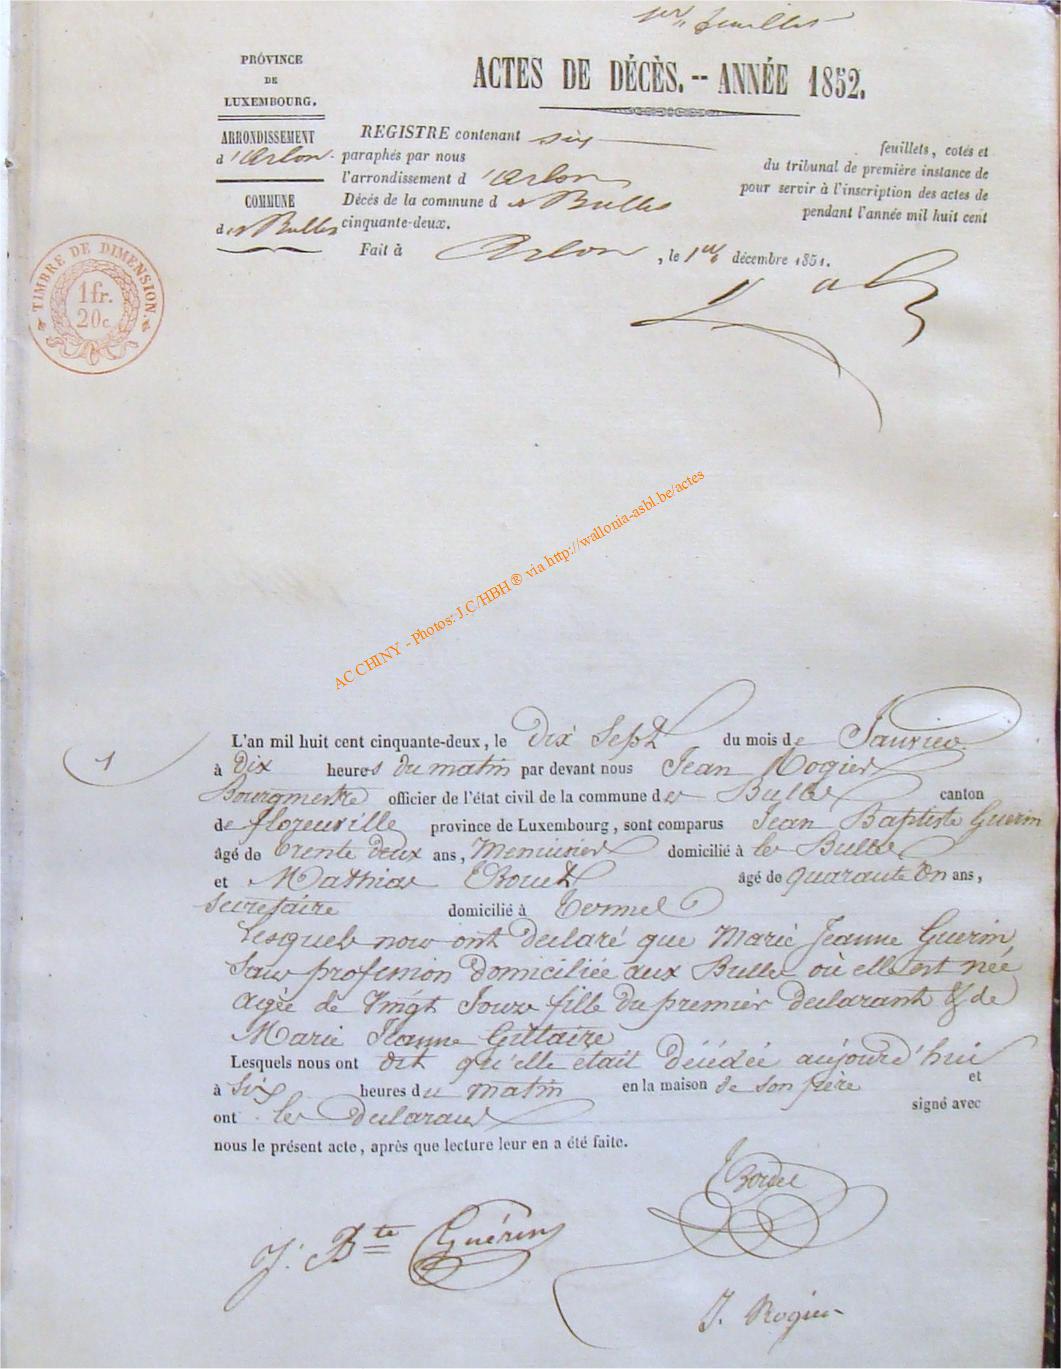 1er feuillet
PROVINCE
DE
LUXEMBOURG.
ACTES DE DÉCÈS. -- ANNÉE 1852.
ARRONDISSEMENT
d'Arlon.
COMMUNE
des Bulles
REGISTRE contenant six feuillets, cotés et
paraphés par nous du tribunal de première instance de
l'arrondissement d'Arlon pour servir à l'inscription des actes de
Décés de la commune des Bulles pendant l'année mil huit cent
cinquante-deux.
Fait à Arlon, le 1er décembre 1851.
TIMBRE DE DIMENSION.
1 fr.
20 c.
AC CHINY - Photos: J.C/HBH ® via http://wallonia-asbl.be/actes
1
L'an mil huit cent cinquante-deux, le dix sept du mois de Janvier
à dix heures du matin par devant nous Jean Rogier
Bourgmestre officier de l'état civil de la commune des Bulles canton
de florenville province de Luxembourg, sont comparus Jean Baptiste Guerin
âgé de trente deux ans, Menuisier domicilié à les Bulles
et Mathias age de quarante un ans,
Secretaire domicilié à Termes
Lesquels nous ont declaré que Marie Jeanne Guerin,
sans profession domiciliée aux Bulles où elle est née
agée de Vingt Jours fille du premier declarant & de
Marie Jeanne Gillaire
Lesquels nous ont dit qu'elle était Décédée aujourd'hui
à Six heures du matin en la maison de son père et
ont les declarans signé avec
nous le présent acte, après que lecture leur en a été faite.
J. Bte Guérin
J. Rogier